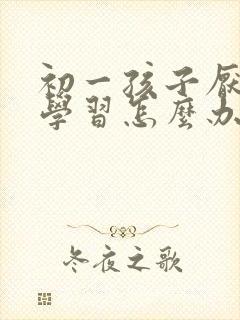 初一孩子厌
學習怎麼办
冬夜之歌